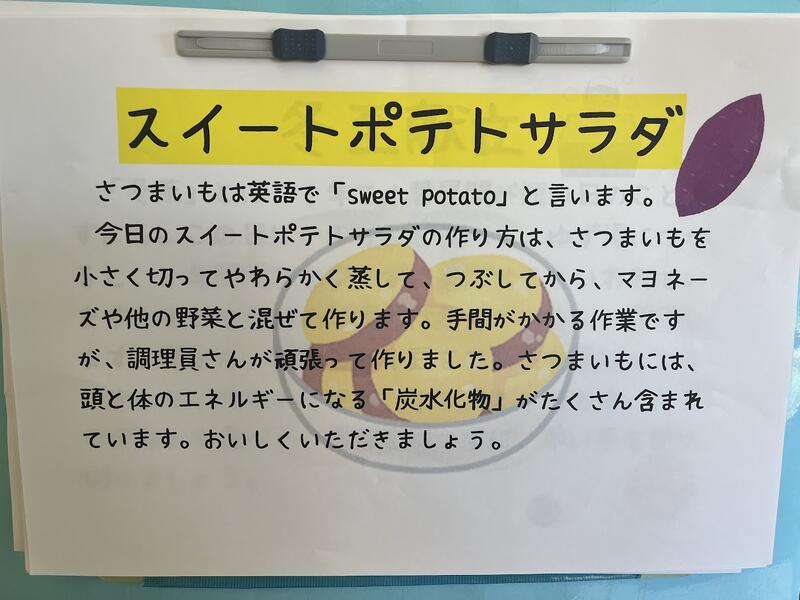 スイートポテトサラダ
さつまいもは英語で「sweet potato」と言います。
今日のスイートポテトサラダの作り方は、さつまいもを
小さく切ってやわらかく蒸して、つぶしてから、マヨネー
ズや他の野菜と混ぜて作ります。手間がかかる作業です
が、調理員さんが頑張って作りました。さつまいもには、
頭と体のエネルギーになる「炭水化物」がたくさん含まれ
ています。おいしくいただきましょう。